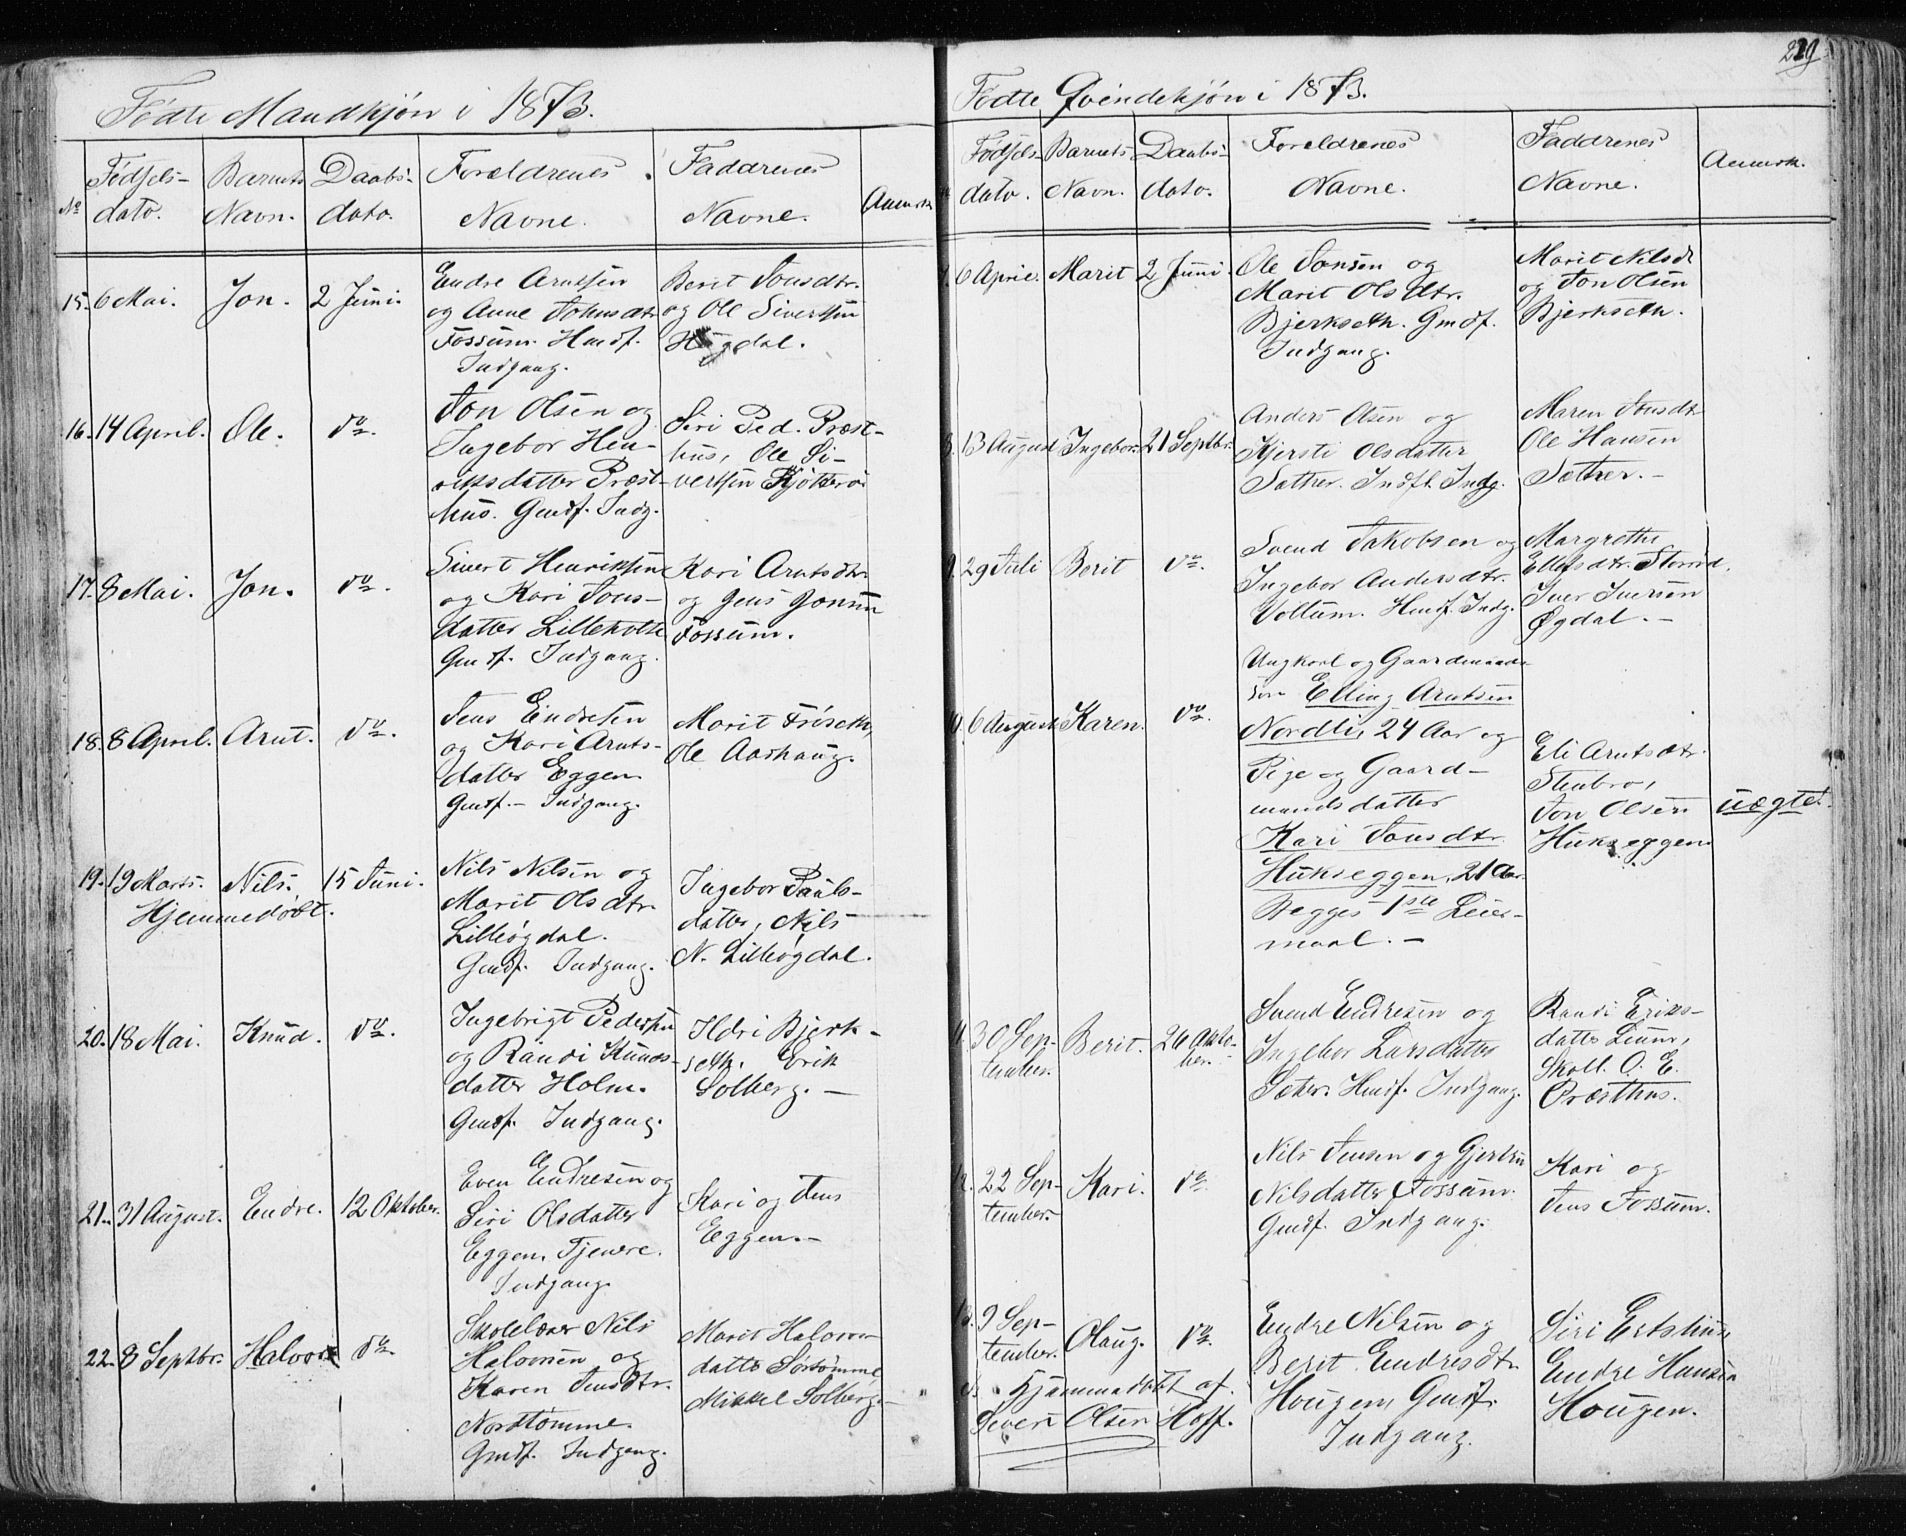 219
Födte Mandkjön i 1873.
No
Födsels-
dato.
Barnets
Navn.
Daabs-
dato.
Forældrenes
Navne.
Faddrenes
Navne.
Anmerk
15. 6 Mai.
Jon.
2 Juni.
Endre Arntsen
og Anne Johnsdtr
Fossum. Hmdf.
Indgang.
Berit Jonsdtr.
og Ole Sivertsen
Hugdal.
16. 14 April.
Ole.
do.
Jon Olsen og
Ingebor Hen-
riksdatter Præst-
hus. Gmdf. Indg.
Siri Ped. Præst-
hus, Ole Si-
vertsen Kjötterö
17. 8 Mai.
Jon.
do.
Sivert Henriksen
og Kari Jons-
datter Lilleholte
Gmdf. Indgang.
Kari Arntsdtr.
og Jens Jonsen
Fossum.
18. 8 April.
Arnt.
do.
Jens Endresen
og Kari Arnts-
datter Eggen
Gmdf.- Indgang.
Marit Friseth,
Ole Aashaug.
19. 19 Marts.
Hjemmedöbt.
Nils.
15 Juni.
Nils Nilsen og
Marit Olsdtr.
Lilleögdal.
Gmdf. Indgang.
Ingebor Pauls-
datter, Nils
N. Lilleögdal.
20. 18 Mai.
Knud.
do.
Ingebrigt Pedersen
og Randi Knuds-
datter Holm.
Gmdf. Indgang.
Ildri Bjerk-
seth. Erik
Solberg. -
21. 31 August.
Endre.
12 Oktober.
Even Endresen og
Siri Olsdatter
Eggen, Tjenere.
Indgang.
Kari og Jens
Eggen.-
22. 8 Septbr.
Halvor
do.
Skolelærer Nils
Halvorsen og
Karen Jensdtr.
Nordtömme.
Gmdf. Indgang.
Marit Halvors-
datter Sörtömme,
Mikkel Solberg.-
Födte Qvindekjön i 1873.
Födsels-
dato.
Barnets
Navn.
Daabs-
dato.
Foreldrenes
Navne.
Faddrenes
Navne.
Anmerk.
7. 6 April.
Marit
2 Juni.
Ole Jonsen og
Marit Olsdtr.
Bjerkseth. Gmdf.
Indgang.
Marit Nilsd
og Jon Olsen
Bjerkseth.
8. 13 August
Ingebor.
21 Septbr.
Anders Olsen og
Kjersti Olsdatter
Sæther. Indft. Indg.
Maren Jonsdtr
Ole Hansen
Sæther. -
9. 29 Juli
Berit
do.
Svend Jakobsen og
Ingebor Andersdtr.
Voltum. Hmdf. Indg.
Margrethe
Ellefsdtr. Storröd,
Iver Iversen
Øgdal. -
10. 6 August
Karen.
do.
Ungkarl og Gaardmands
sön Elling Arntsen
Nordli, 24 Aar og
Pige og Gaard-
mandsdatter
Kari Jonsdtr
Hukseggen, 21 Aar.
Begges 1ste Leier-
maal. -
Eli Arntsdtr.
Stenbro,
Jon Olsen
Hukseggen
uægte.
11. 30 Sep-
tember.
Berit.
26 Okto-
ber.
Svend Endresen og
Ingebor Larsdatter
Sæter. Hmdf. Indgang.
Randi Eriks-
datter Lium,
Skoll. O. E.
Præsthus.
12. 22 Sep-
tember.
Kari.
do.
Nils Jensen og Gjertru
Nilsdatter Fossum.
Gmdf. Indgang.
Kari og
Jens Fossum.
13. 9 Sep-
tember.
Olaug.
do.
Hjemmedöbt af
Sivert Olsen Hoff.
Endre Nilsen og
Berit Endresdtr.
Hougen, Gmdf.
Indgang.
Siri Estensen
Endre Hansen
Hougen.